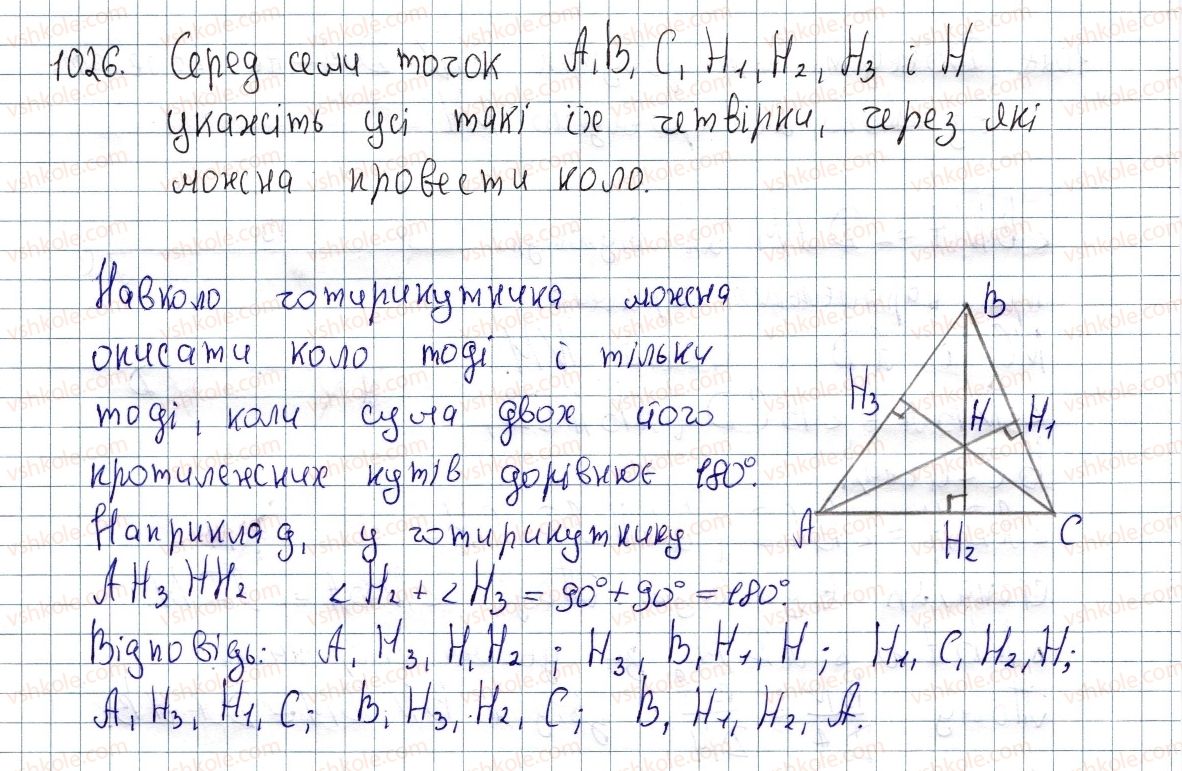 1026. Серед семи точок A, B, C, H1, H2, H3 і H
укажіть усі такі їх четвірки, через які
можна провести коло.
Навколо чотирикутника можна
описати коло тоді і тільки
тоді, коли сума двох його
протилежних кутів дорівнює 180°.
Наприклад, у чотирикутнику
AH3HH2 ∠H2 + ∠H3 = 90° + 90° = 180°.
Відповідь: A, H3, H, H2 ; H3, B, H1, H ; H1, C, H2, H;
A, H3, H1, C; B, H3, H2, C; B, H1, H2, A.
B
H3
H
H1
A
H2
C
vshkole.com